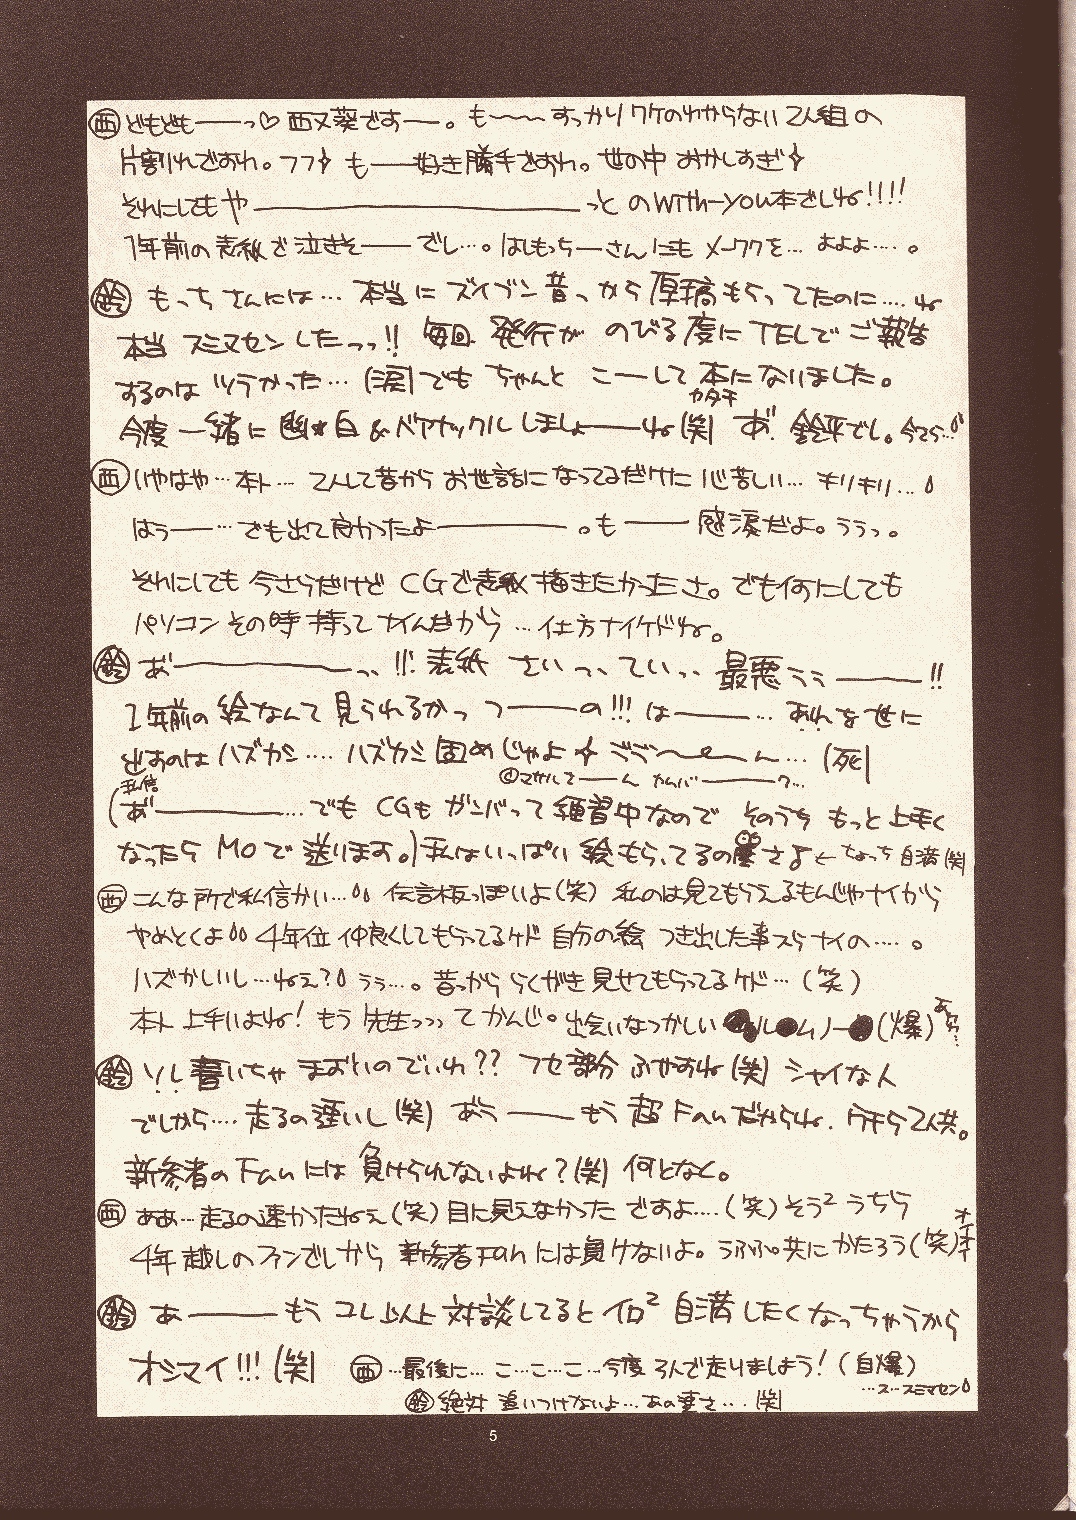 ㊄ どもども――っ♡ 西又葵です―。も〜〜すっかりワケのわからない2人組の
片割れでおわ。フフ✧ も――好き勝手でおわ。世の中おかしすぎ✧
それにしてもや――――――――っと のWith-you本でしね!!!!
1年前の表紙で泣きそ――でし…。はしもっちーさんにもメーワクを… よよよ…。
鈴 もっちさんには… 本当にズイブン昔っから原稿もらってたのに….ね
本当スミマセンしたっっ!! 毎回 発行がのびる度にTELでご報告
するのはツラかった… (涙)でも ちゃんと こーして本になりました。
カタチ
今度一緒に幽★白&ベアナックルしましょ――ね(笑) あ゛. 鈴平でし。今さら…
西 いやはや… 本ト… 2人して昔からお世話になってるだけに心苦しい… キリキリ…
はぅ――… でも出て良かったよ――――。も――感涙だよ。ううっ。
それにしても今さらだけど CGで表紙描きたかったさ。でも何にしても
パソコンその時持ってナイんだから …仕方ナイケドね。
鈴 あ゛――――っっ!!! 表紙 さいっっていっっ 最悪ぅぅ――!!
1年前の絵なんて見られるかっ つ――の!!! は――… あれを世に
出すのはハズカシ…. ハズカシ固めじゃよ✧ ごご〜〜ん… (死)
(私信
あ゛――――… でも CGもガンバって練習中なので そのうち もっと上手く
なったら MOで送ります。)私はいっぱい絵もらってるのさよ← ちょっち自満(笑)
西 こんな所で私信かい… 伝言板っぽいよ(笑) 私のは見てもらえるもんじゃナイから
やめとくよ 4年位仲良くしてもらってるケド 自分の絵 つき出した事スラナイの….。
ハズかしいし…ねぇ? うぅ…。昔っから らくがき見せてもらってるケド…(笑)
本ト上手いよね! もう先生っっってかんじ。出会いなつかしい●ル●ムノー●(爆)
鈴 ソレ書いちゃまずいのでいわ?? フセ部分 ふやすおね(笑) シャイな人
でしから…. 走るの遅いし(笑) あう――もう 超Fanだからね. ウチら2人共。
新参者のFanには負けられないよね?(笑) 何となく。
西 ああ… 走るの速かったねぇ(笑)目に見えなかったですよ….(笑)そう²うちら
4年越しのファンでしから 新参者Fanには負けないよ。うふふ。共にかたろう(笑)
オイオイ
鈴 あ――もう コレ以上対談してるとイロ²自満したくなっちゃうから
オシマイ!!!(笑) 西 …最後に… こ…こ…こ…今度3人で走りましょう!(自爆)
…ス…スミマセン
鈴 絶対追いつけないよ… あの速さ…(笑)
5